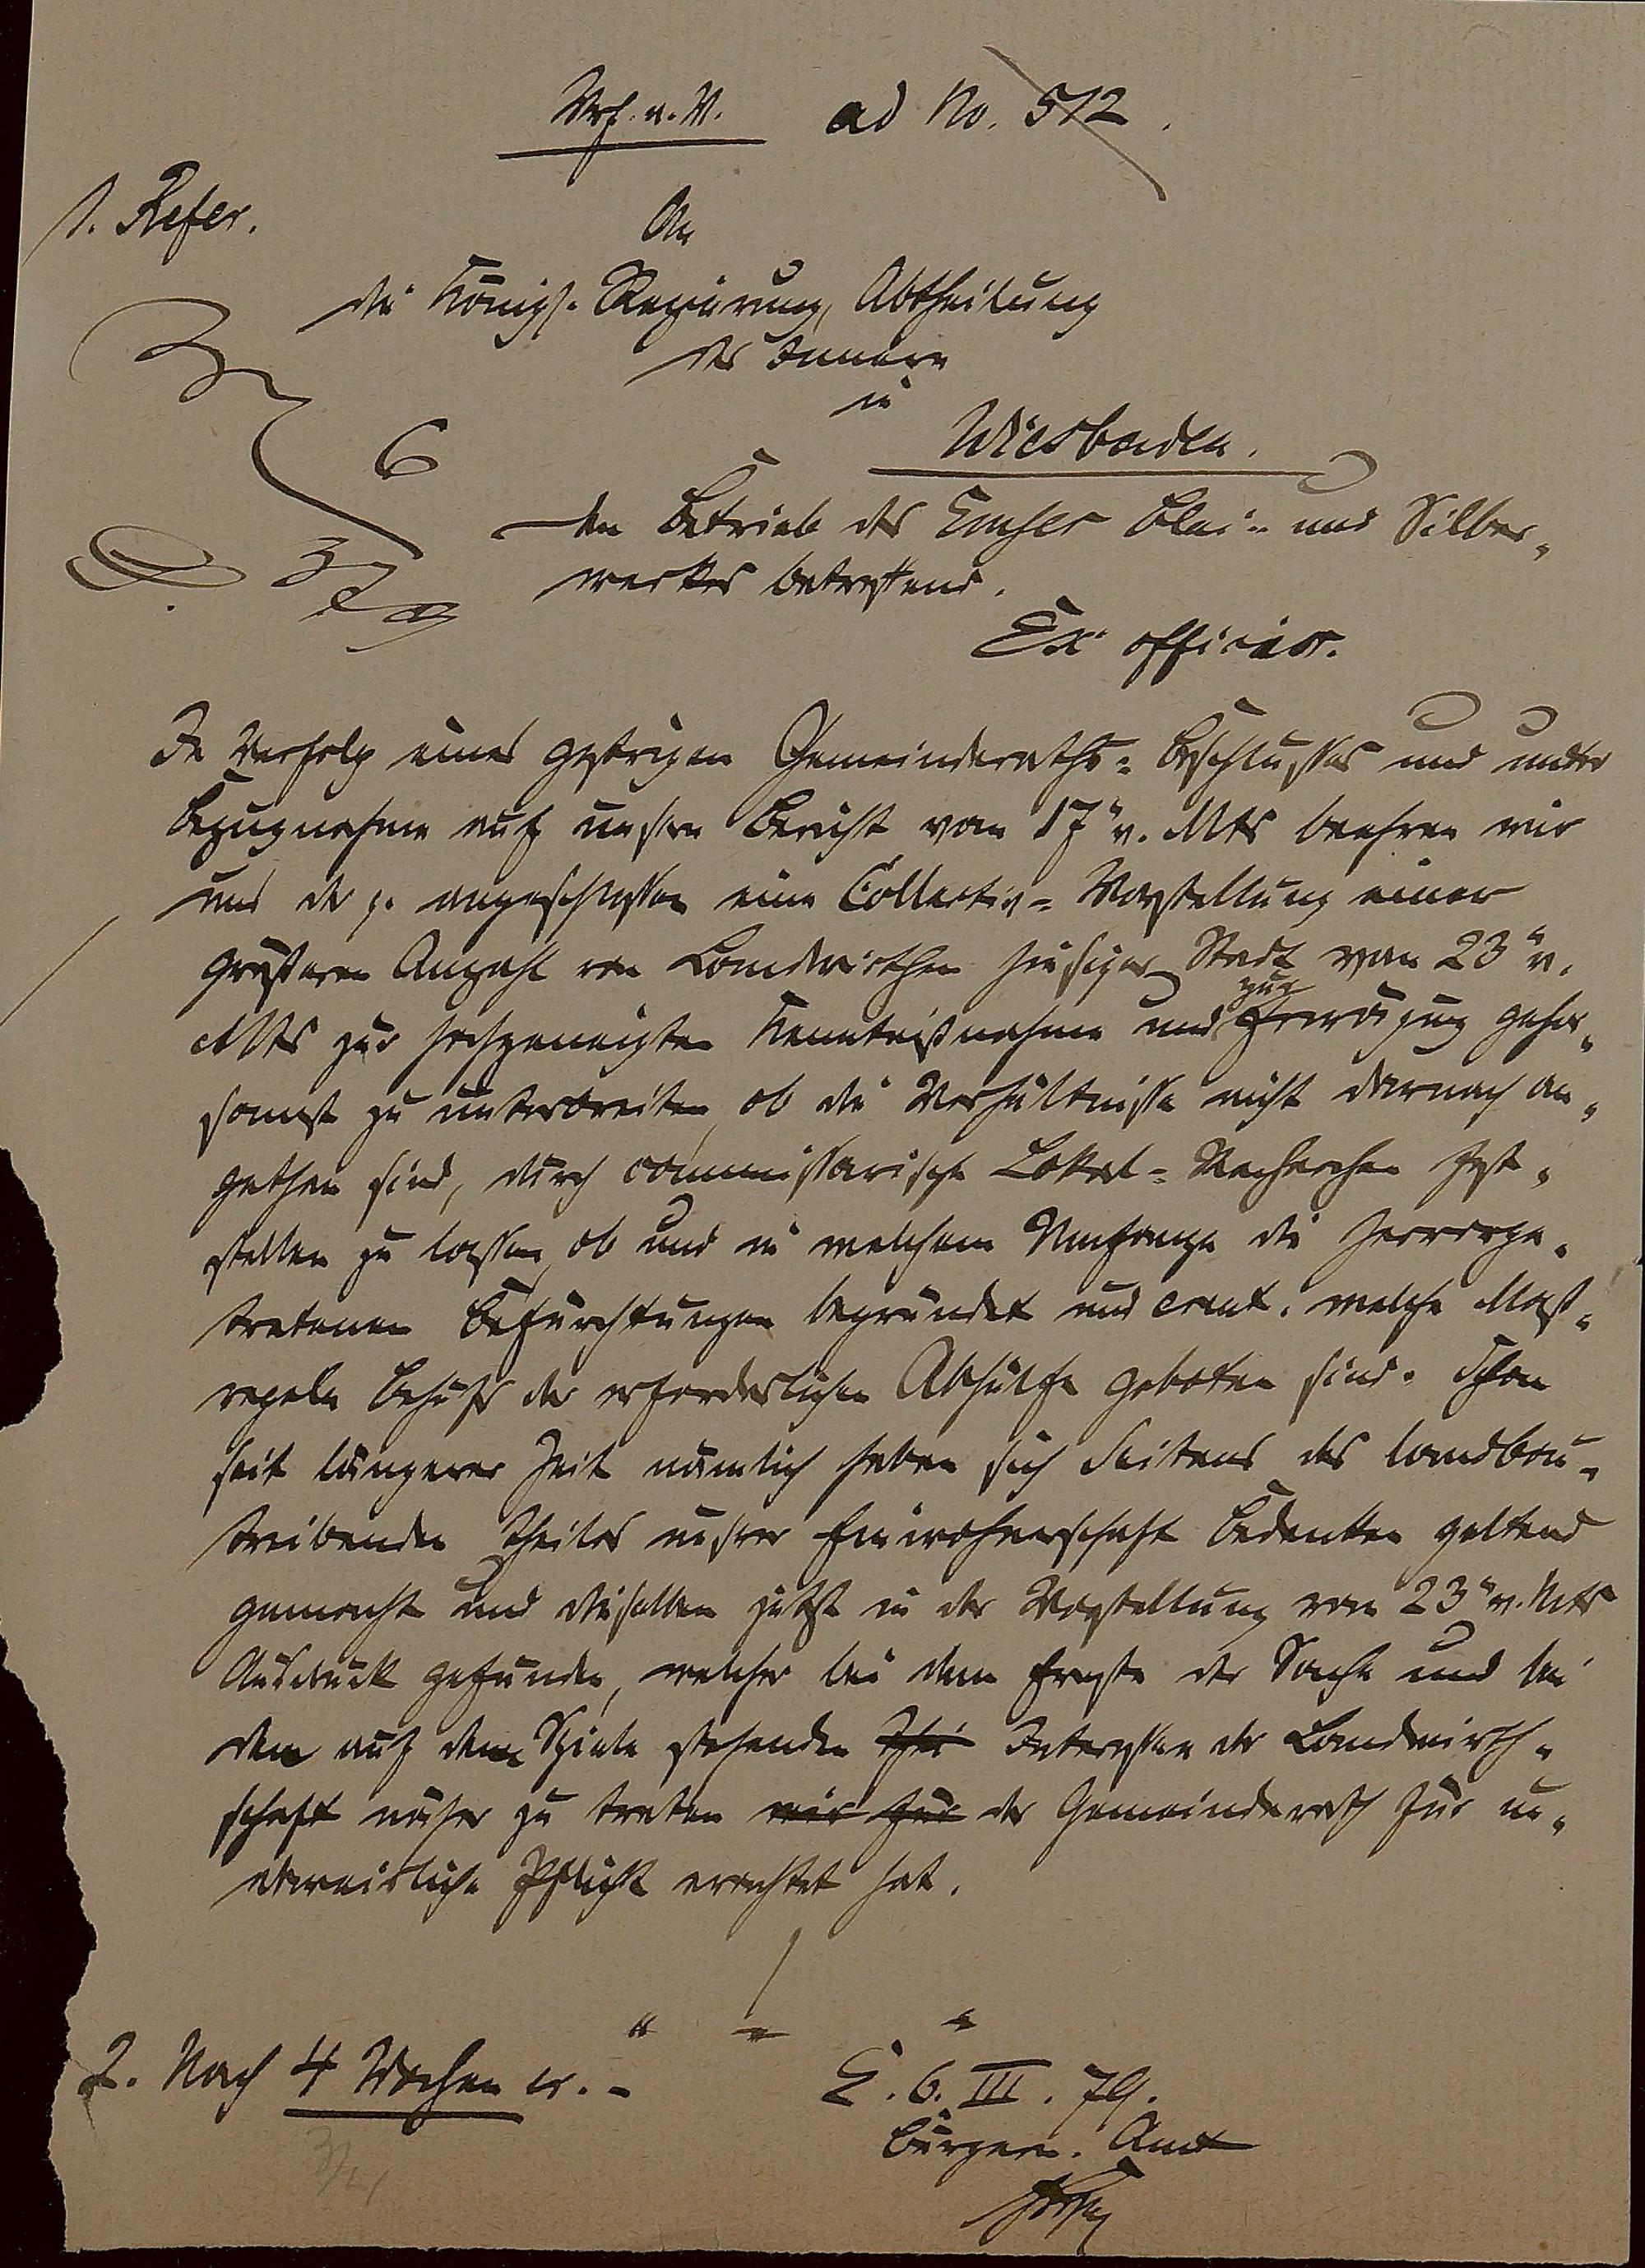 ad No. 512.
1. Refer.
An
die Königl. Regierung, Abtheilung
des Innern
in
Wiesbaden.
6
3 79
den Betrieb des Emser Blei- und Silber-
werkes betreffend.
Ex officio.
In Verfolg eines gestrigen Gemeinderaths-Beschlusses und unter
Bezugnahme auf unsern Bericht vom 17. v. Mts beehren wir
uns der p. angeschlossen eine Collectiv-Vorstellung einer
größeren Anzahl von Landwirthen hiesiger Stadt vom 23. v.
Mts zur hochgeneigten Kenntnißnahme und zur Erwägung gehor-
samst zu unterbreiten, ob die Verhältnisse nicht darnach an-
gethan sind, durch commissarische Lokal-Recherchen fest-
stellen zu lassen, ob und in welchem Umfange die hervorge-
tretenen Befürchtungen begründet und event. welche Maß-
regeln behufs der erforderlichen Abhülfe geboten sind. Schon
seit längerer Zeit nämlich haben sich Seitens des landbau-
treibenden Theiles unsrer Einwohnerschaft Bedenken geltend
gemacht und dieselben jetzt in der Vorstellung vom 23. v. Mts
Ausdruck gefunden, welcher bei dem Ernste der Sache und bei
den auf dem Spiele stehenden Interessen der Landwirth-
schaft näher zu treten wir für der Gemeinderath für un-
abweisliche Pflicht erachtet hat.
2. Nach 4 Wochen v.-
E. 6. III. 79.
Bürgerm. Amt